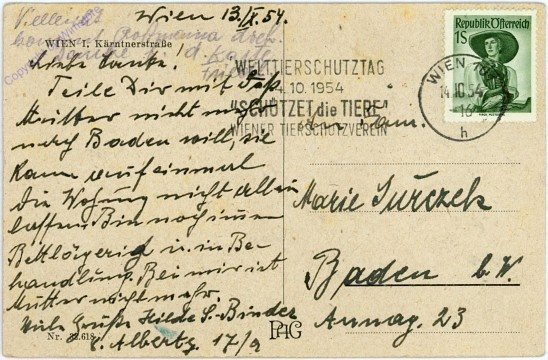 Wien 13./X. 54.
Vielleicht
WIEN I, Kärntnerstraße
Liebe Tante.
Teile Dir mit daß
Mutter nicht mehr
nach Baden will, sie
kann auf einmal
die Wohnung nicht allein
lassen. Bin noch immer
Bettlägerig u. in Be-
handlung. Bei mir ist
Mutter nicht mehr.
Viele Grüße Hilde S.-Binder
Albertg. 17/9
Nr. 32.618
PAG
Republik Österreich
1S
WIEN
14.10.54
16
h
WELTTIERSCHUTZTAG
4.10.1954
"SCHÜTZET die TIERE"
WIENER TIERSCHUTZVEREIN
Marie Jurczek
Baden b. W.
Annag. 23